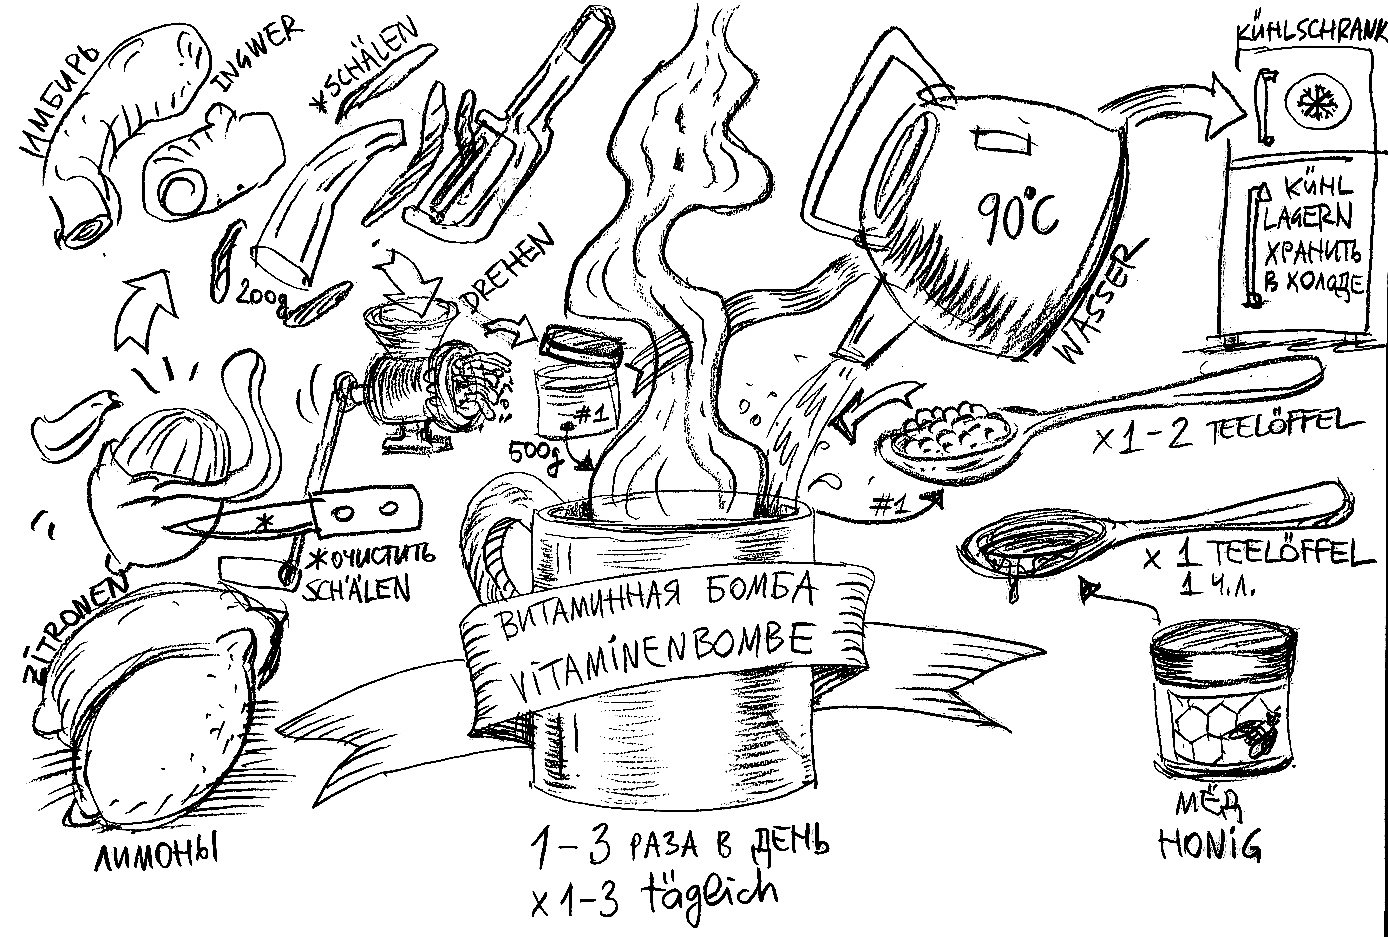 ИМБИРЬ
INGWER
*SCHÄLEN
200g
DREHEN
#1
500g
90°C
WASER
KÜHLSCHRANK
KÜHL
LAGERN
ХРАНИТЬ
В ХОЛОДЕ
x 1-2 TEELÖFFEL
#1
x 1 TEELÖFFEL
1 Ч.Л.
МЁД
HONIG
*
*ОЧИСТИТЬ
SCHÄLEN
ZITRONEN
ЛИМОНЫ
ВИТАМИННАЯ БОМБА
VITAMINENBOMBE
1-3 РАЗА В ДЕНЬ
x 1-3 täglich